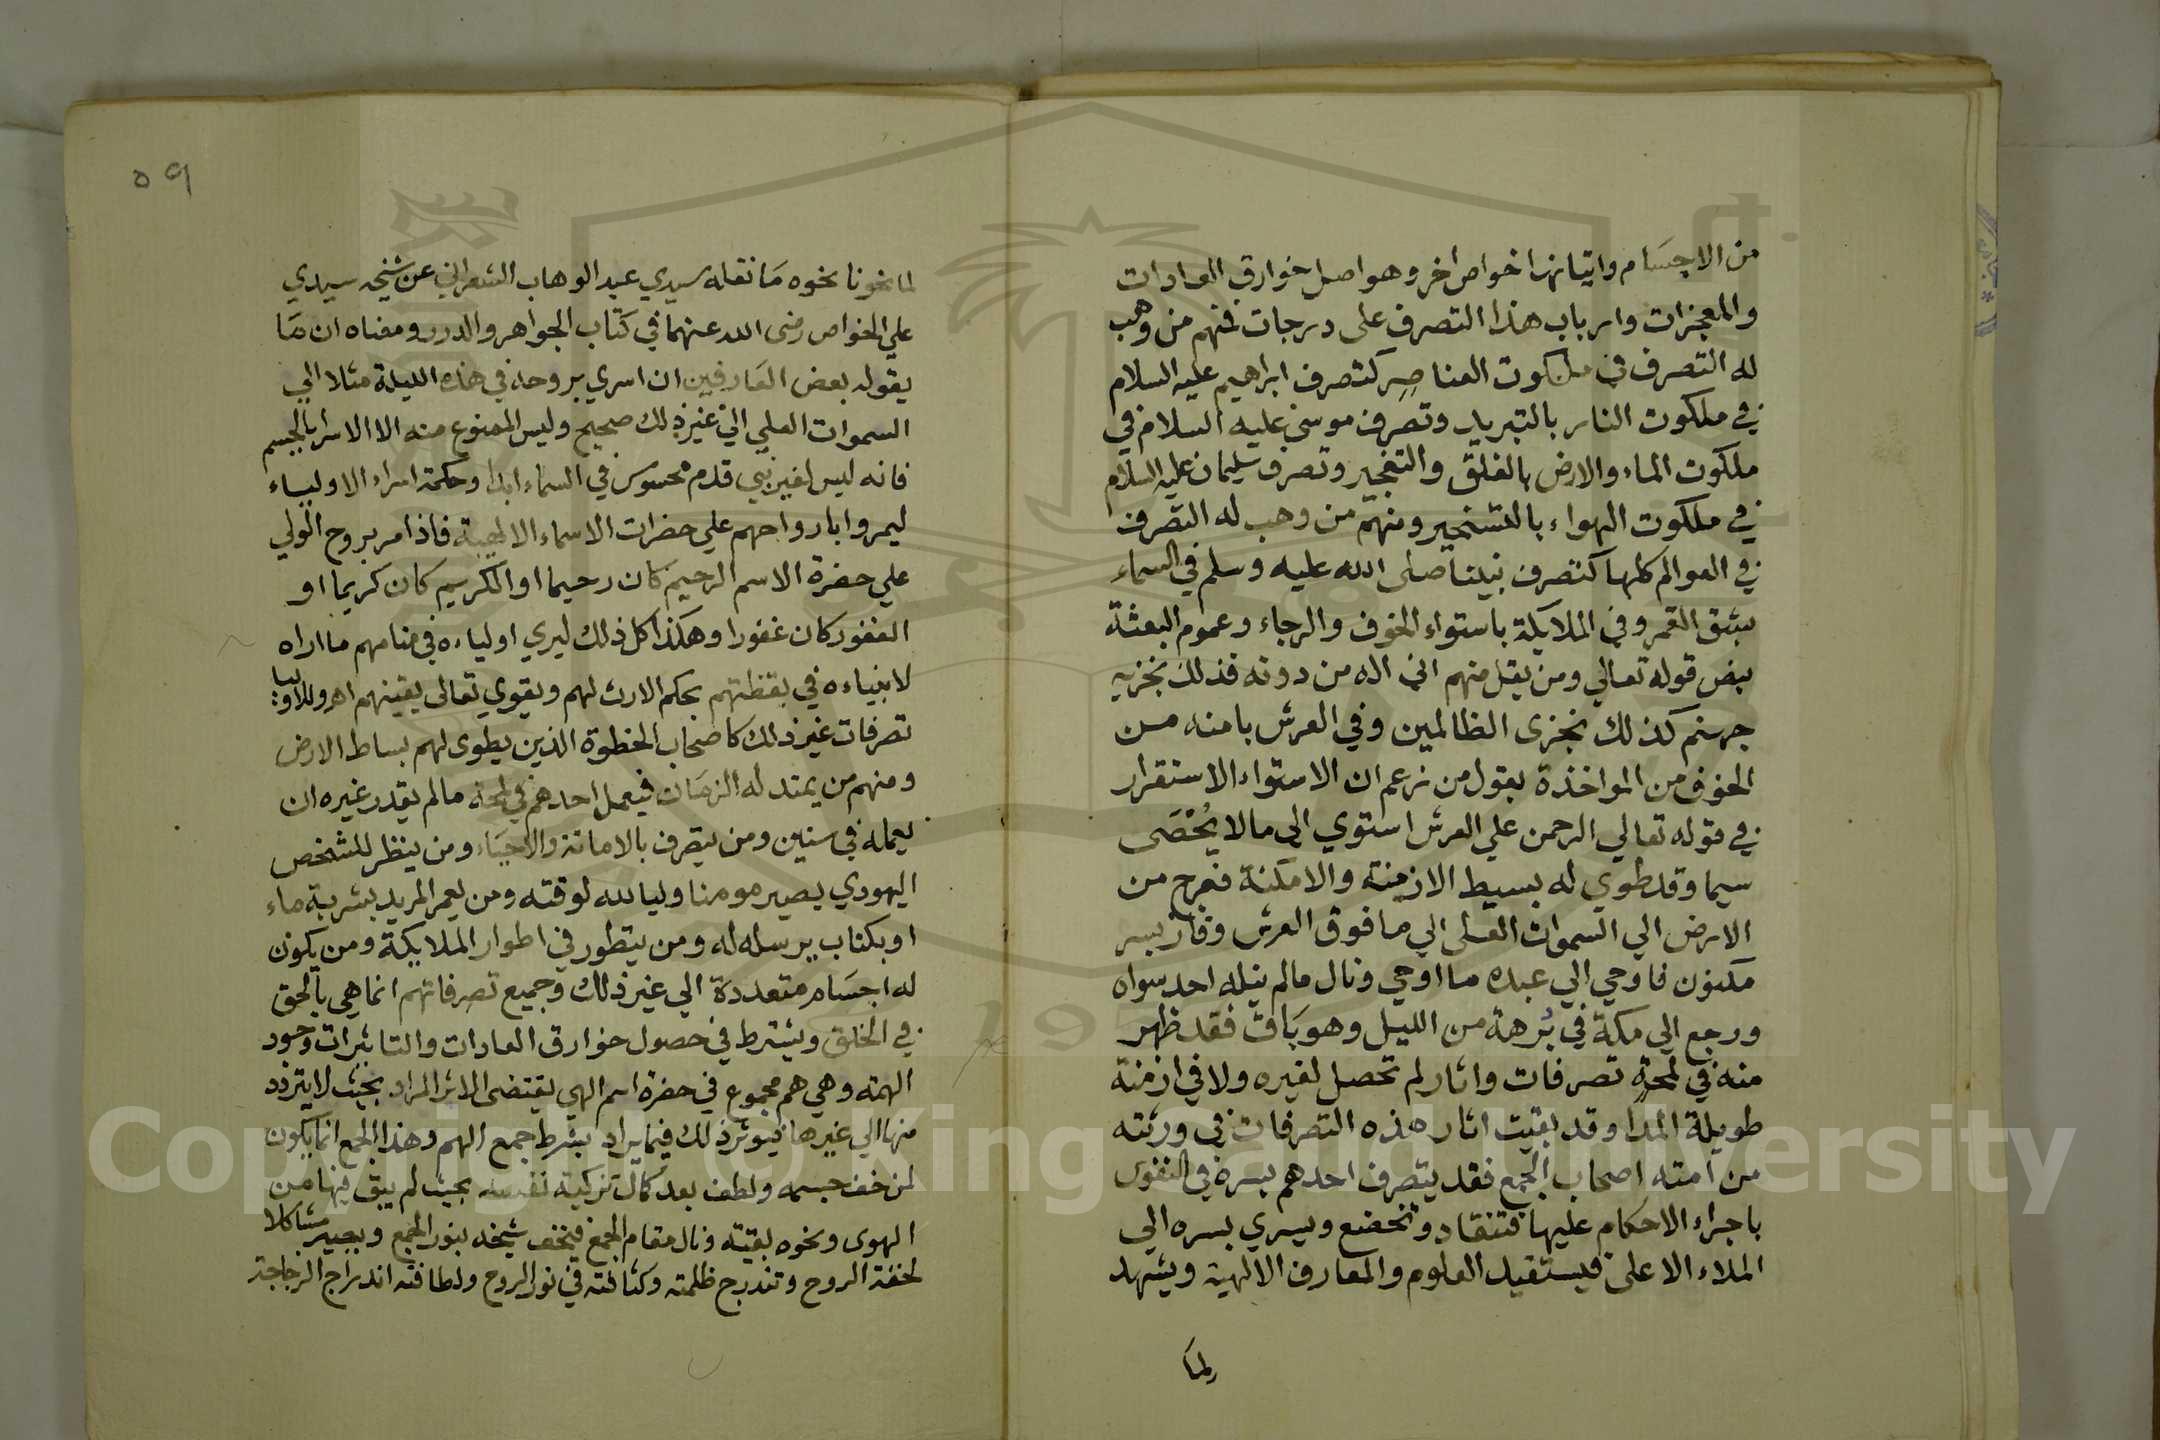 من الاجسام واتيانها خواص اخر وهو اصل خوارق العادات
والمعجزات وارباب هذا التصرف على درجات فمنهم من وهب
له التصرف في ملكوت العناصر كتصرف ابراهيم عليه السلام
في ملكوت النار بالتبريد وتصرف موسى عليه السلام في
ملكوت الماء والارض بالفلق والتفجير وتصرف سليمان عليه السلام
في ملكوت الهواء بالتسخير ومنهم من وهب له التصرف
في العوالم كلها كتصرف نبينا صلى الله عليه وسلم في السماء
بشق القمر وفي الملايكة باستواء الخوف والرجاء وعموم البعثة
بنص قوله تعالي ومن يقل منهم اني اله من دونه فذلك نجزيه
جهنم كذلك نجزى الظالمين وفي العرش بامنه من
الخوف من المواخذة بقول من زعم ان الاستواء الاستقرار
في قوله تعالي الرحمن علي العرش استوي الى مالا يحصى
سيما وقد طوي له بسيط الازمنة والامكنة فعرج من
الارض الي السموات العلى الي ما فوق العرش وفاز بسر
مكنون فاوحي الي عبده ما اوحي ونال مالم ينله احد سواه
ورجع الي مكة في برهة من الليل وهو باق فقد ظهر
منه في لمحة تصرفات واثار لم تحصل لغيره ولا في ازمنة
طويلة المدا وقد بقيت اثار هذه التصرفات في ورثته
من امته اصحاب الجمع فقد يتصرف احدهم بسره في النفوس
باجراء الاحكام عليها فتنقاد وتخضع ويسري بسره الي
الملاء الاعلى فيستفيد العلوم والمعارف الالهية ويشهد
لما
٥٩
لما نحونا نحوه ما نقله سيدي عبد الوهاب الشعراني عن شيخه سيدي
علي الخواص رضى الله عنهما في كتاب الجواهر والدرر ومعناه ان ما
يقوله بعض العارفين ان اسري بروحه في هذه الليلة مثلا الي
السموات العلي الي غير ذلك صحيح وليس الممنوع منه الا الاسرا بالجسم
فانه ليس لغير نبي قدم محسوس في السماء ابدا وحكمة اسراء الاولياء
ليمروا بارواحهم علي حضرات الاسماء الالهية فاذا مر بروح الولي
علي حضرة الاسم الرحيم كان رحيما او الكريم كان كريما او
الغفور كان غفورا وهكذا كل ذلك ليري اولياءه في منامهم ما اراه
لانبياءه في يقظتهم بحكم الارث لهم ويقوي تعالى يقينهم اهـ وللاوليا
تصرفات غير ذلك كاصحاب الخطوة الذين يطوى لهم بساط الارض
ومنهم من يمتد له الزمان فيعمل احدهم في لمحة مالم يقدر غيره ان
يعمله في سنين ومن يتصرف بالاماتة والاحياء ومن ينظر للشخص
اليهودي يصير مومنا وليا لله لوقته ومن يعمر المريد بشربة ماء
او بكتاب يرسله له ومن يتطور في اطوار الملايكة ومن يكون
له اجسام متعددة الي غير ذلك وجميع تصرفاتهم انما هي بالحق
في الخلق ويشترط في حصول خوارق العادات والتاثيرات وجود
الهمة وهي هم مجموع في حضرة اسم الهي يقتضى الاثر المراد بحيث لا يتردد
منها الي غيرها فيوثر ذلك فيما يراد بشرط جمع الهم وهذا الجمع انما يكون
لمن خف جسمه ولطف بعد كمال تزكية نفسه بحيث لم يبق فيها من
الهوى ونحوه بقية ونال مقام الجمع فيخف شبحه بنور الجمع ويصير مشاكلا
لخفة الروح وتندرج ظلمته وكثافته في نور الروح ولطافته اندراج الزجاجة
Copyright © King Saud University